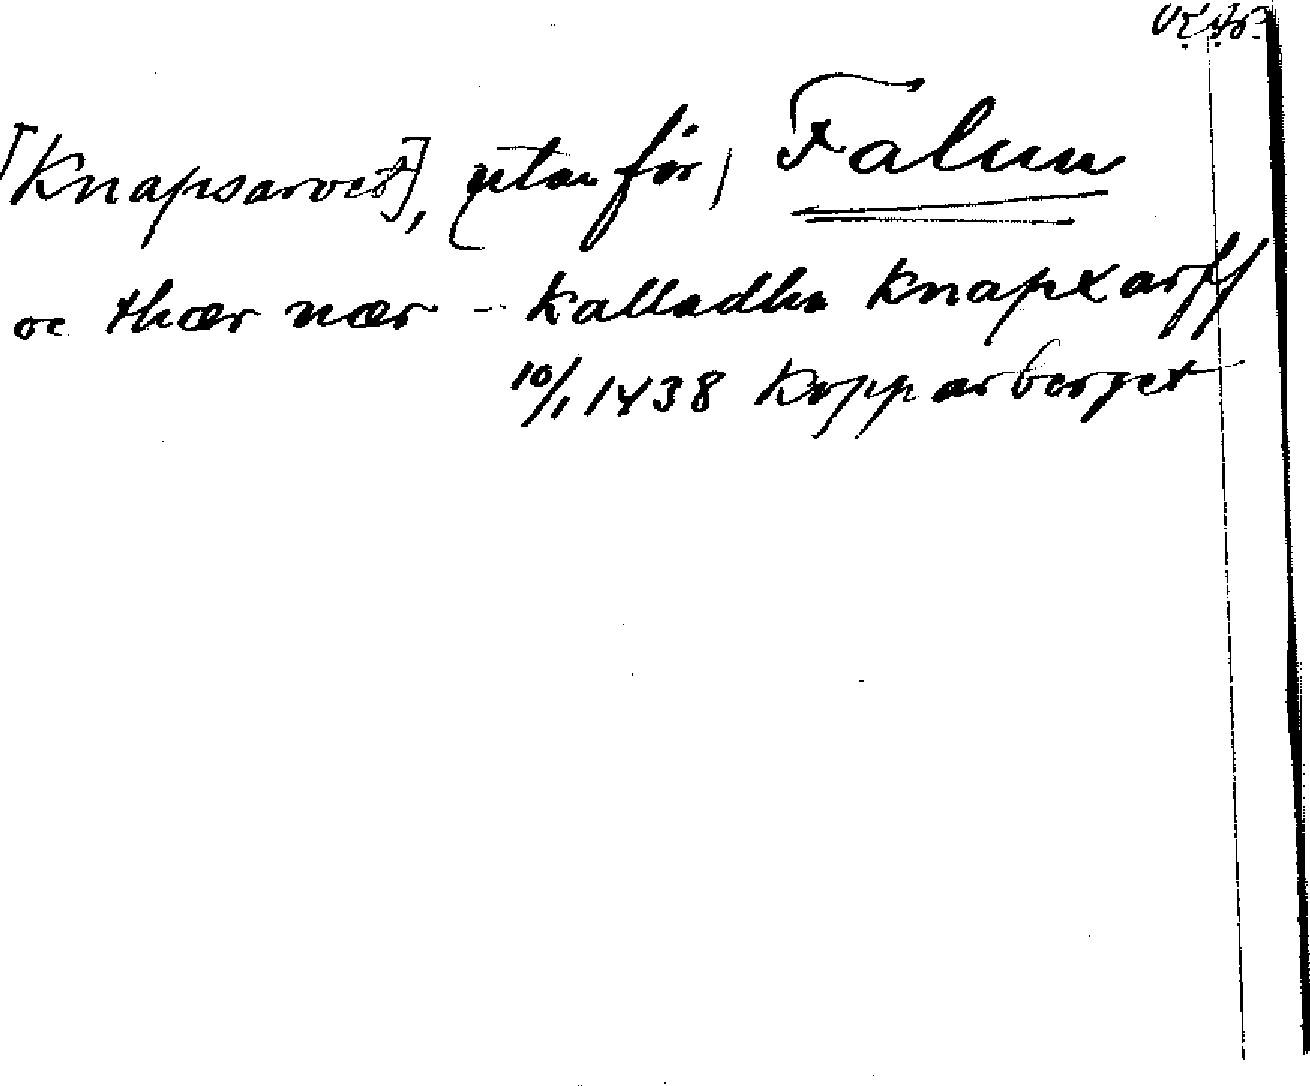 [Knapsarvet], (utanför) Falun
oc thær nær - kalladha knapxarff
10/1 1438 Kopparberget